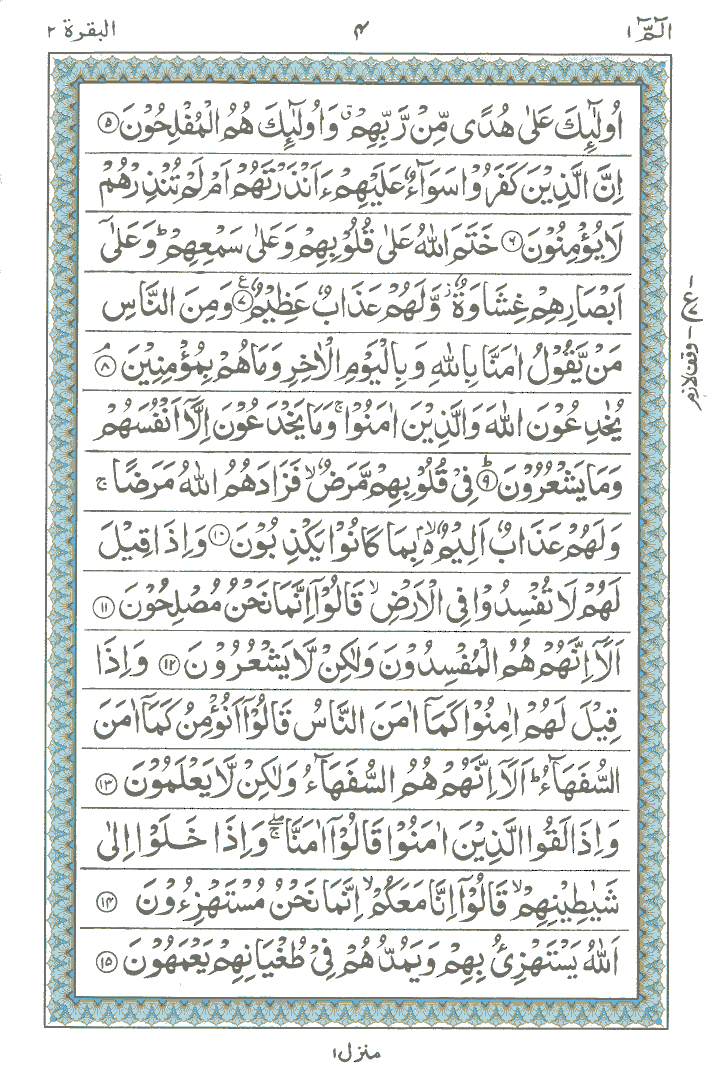 الٓمّٓ ١ ۴ البقرة ٢
اُولٰٓئِكَ عَلٰى هُدًى مِّنْ رَّبِّهِمْ ۗ وَاُولٰٓئِكَ هُمُ الْمُفْلِحُوْنَ ۵
اِنَّ الَّذِيْنَ كَفَرُوْا سَوَآءٌ عَلَيْهِمْ ءَاَنْذَرْتَهُمْ اَمْ لَمْ تُنْذِرْهُمْ
لَا يُؤْمِنُوْنَ ۶ خَتَمَ اللّٰهُ عَلٰى قُلُوْبِهِمْ وَعَلٰى سَمْعِهِمْ ؕ وَعَلٰٓى
اَبْصَارِهِمْ غِشَاوَةٌ ز وَّلَهُمْ عَذَابٌ عَظِيْمٌ ۷ ع وَمِنَ النَّاسِ
مَنْ يَّقُوْلُ اٰمَنَّا بِاللّٰهِ وَبِالْيَوْمِ الْاٰخِرِ وَمَا هُمْ بِمُؤْمِنِيْنَ ۘ ۸
يُخٰدِعُوْنَ اللّٰهَ وَالَّذِيْنَ اٰمَنُوْا ۚ وَمَا يَخْدَعُوْنَ اِلَّآ اَنْفُسَهُمْ
وَمَا يَشْعُرُوْنَ ؕ ۹ فِيْ قُلُوْبِهِمْ مَّرَضٌ ۙ فَزَادَهُمُ اللّٰهُ مَرَضًا ۚ
وَلَهُمْ عَذَابٌ اَلِيْمٌ ۢ ۙ۬ بِمَا كَانُوْا يَكْذِبُوْنَ ۱۰ وَاِذَا قِيْلَ
لَهُمْ لَا تُفْسِدُوْا فِى الْاَرْضِ ۙ قَالُوْٓا اِنَّمَا نَحْنُ مُصْلِحُوْنَ ۱۱
اَلَآ اِنَّهُمْ هُمُ الْمُفْسِدُوْنَ وَلٰكِنْ لَّا يَشْعُرُوْنَ ۱۲ وَاِذَا
قِيْلَ لَهُمْ اٰمِنُوْا كَمَآ اٰمَنَ النَّاسُ قَالُوْٓا اَنُؤْمِنُ كَمَآ اٰمَنَ
السُّفَهَآءُ ؕ اَلَآ اِنَّهُمْ هُمُ السُّفَهَآءُ وَلٰكِنْ لَّا يَعْلَمُوْنَ ۱۳
وَاِذَا لَقُوا الَّذِيْنَ اٰمَنُوْا قَالُوْٓا اٰمَنَّا ۖۚ وَاِذَا خَلَوْا اِلٰى
شَيٰطِيْنِهِمْ ۙ قَالُوْٓا اِنَّا مَعَكُمْ ۙ اِنَّمَا نَحْنُ مُسْتَهْزِءُوْنَ ۱۴
اَللّٰهُ يَسْتَهْزِئُ بِهِمْ وَيَمُدُّهُمْ فِيْ طُغْيَانِهِمْ يَعْمَهُوْنَ ۱۵
وقف لازم
منزل ۱